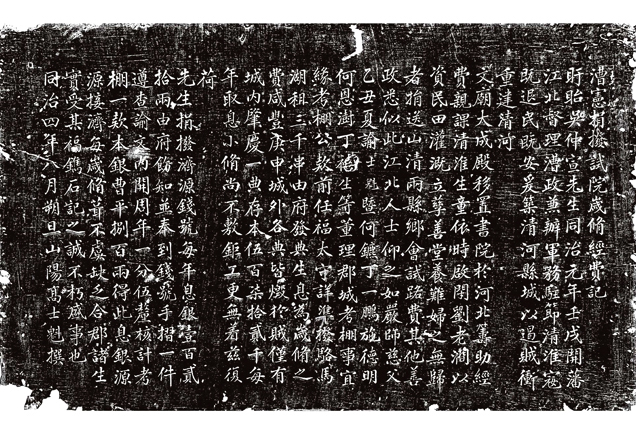 漕憲捐撥試院歲脩經費記
盱眙吳仲宣先生同治元年壬戌開藩
江北督理漕政兼辦軍務駐節清淮寇
旣退民旣安爰築清河縣城以遏賊衝
重建清河
文廟大成殿移置書院於河北籌助經
費親課清淮生童依時啟閉劉老澗以
資民田灌溉立普善堂養嫠婦之無歸
者捐送山清兩縣鄉會試路費其他善
政悉似此江北人士仰之如嚴師慈父
乙丑夏諭士魁暨何鑣丁一鵬施德明
何恩澍丁生等董理郡城考棚事宜
緣考棚公款前任福太守詳準撥駱馬
湖租三千串由府發典生息為歲脩之
費咸豐庚申城外各典皆燬於賊僅有
城內肇慶一典存本伍百柒拾貳千每
年取息小脩尚不敷鉅工更無着茲復
荷
先生捐撥濟源錢號每年息銀壹百貳
拾兩由府飭知並奉到錢號手摺一件
遵查諭案內開周年一分伍釐核計考
棚一款本銀曹平捌百兩得此息銀源
源接濟每歲脩葺不虞缺乏合郡諸生
實受其福鐫石記之誠不朽盛事也
同治四年八月朔日山陽高士魁撰